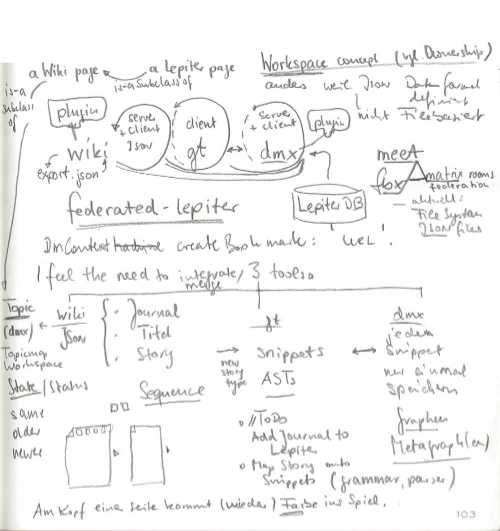 a Wiki page
a Lepiter page
Workspace concept (vgl Ownership)
is-a
subclass
of
is-a subclass of
anders weil Json
Daten format
definiert
nicht File basiert
plugin
serve
+ client
Json
client
gt
serve
+ client
dmx
plugin
wiki
export.json
meet
fox
matrix rooms
federation
Lepiter DB
federated-lepiter
aktuell:
File System
JSON files
DmContext create Book mark: URL!
I feel the need to integrate/ 3 tools.
merge
Topic
(dmx)
Topicmap
Workspace
Wiki
Json
Journal
Titel
Story
gt
new
story
type
Snippets
ASTs
dmx
jedem
Snippet
nur einmal
speichern
State/Status
same
older
newer
Sequence
//ToDo
Add Journal to
Lepiter
Map Story onto
Snippets (grammar, parser)
Graphen
Metagraph(en)
Am Kopf einer Seite kommt (wieder) Farbe ins Spiel.
103